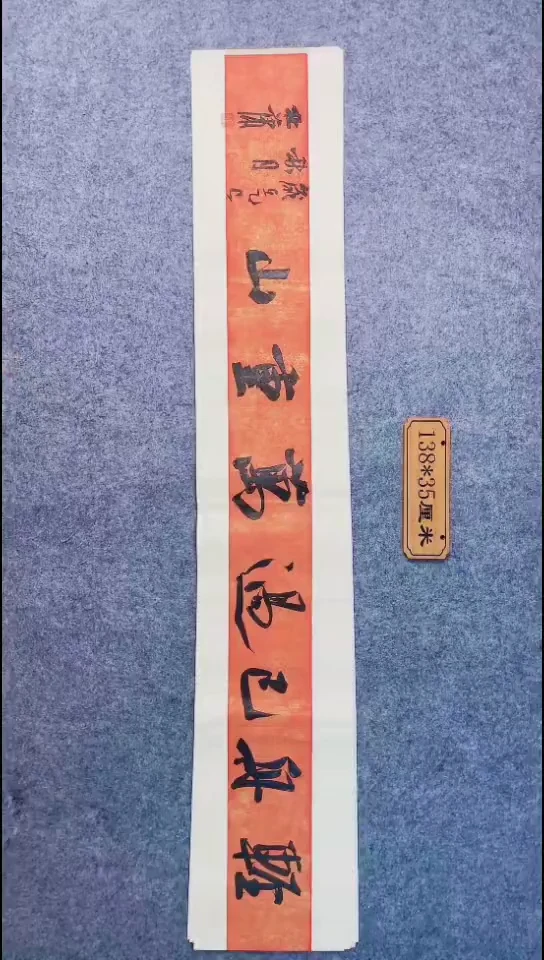 輕舟已過萬重山
乙巳
138*35厘米